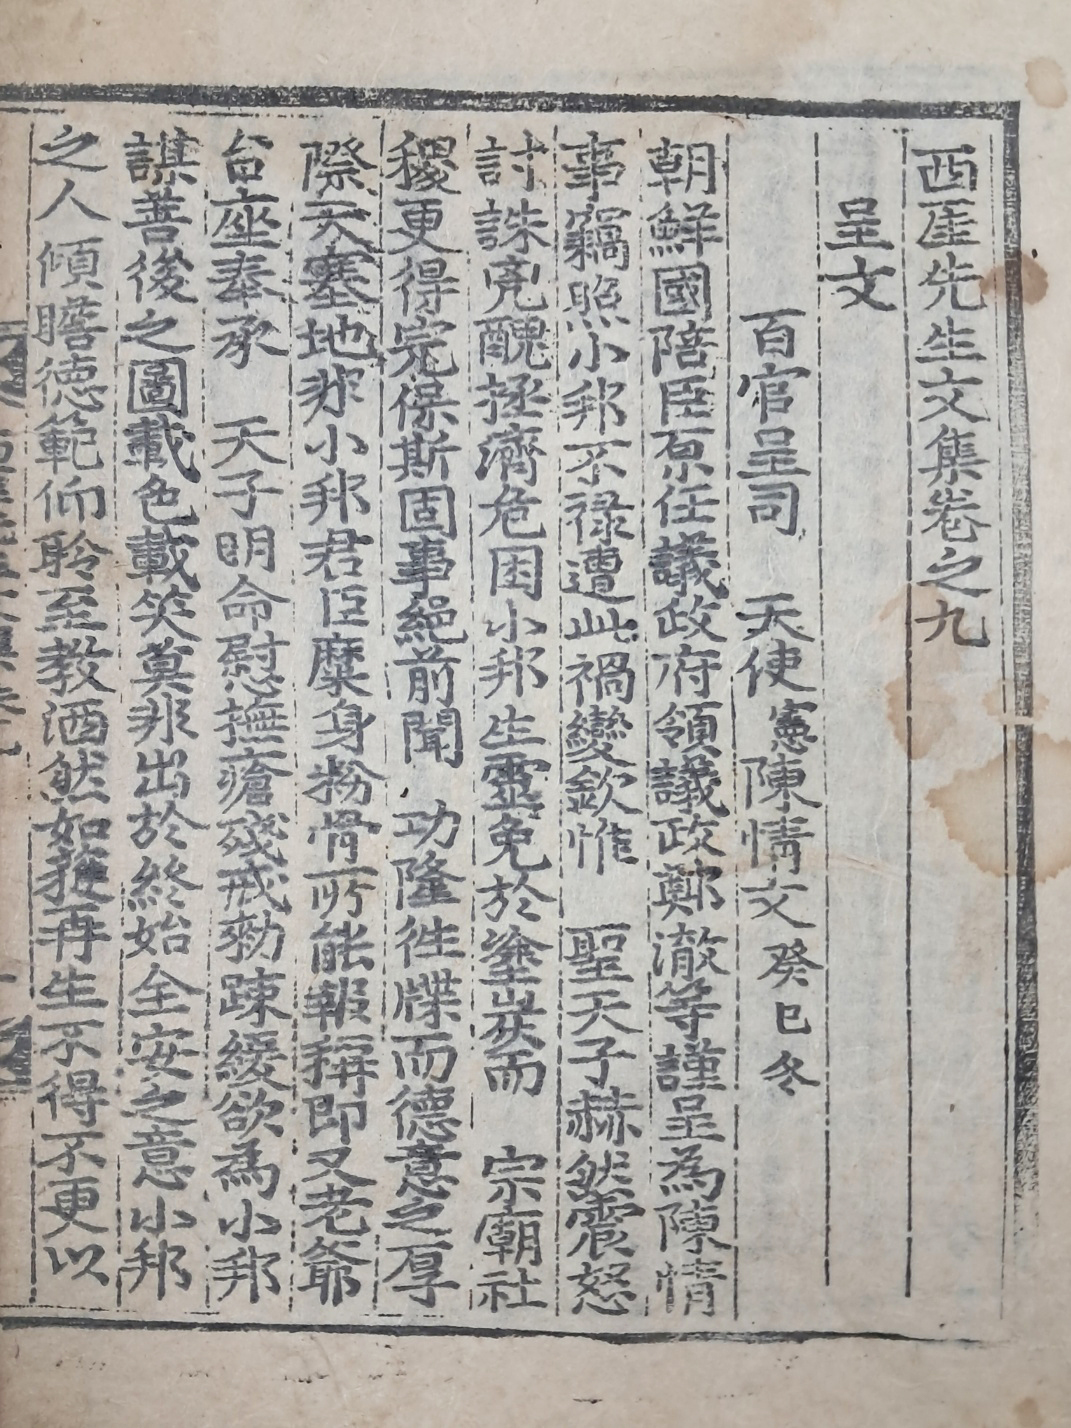 西厓先生文集卷之九
呈文
百官呈司 天使憲陳情文癸巳冬
朝鮮國陪臣原任議政府領議政鄭澈等謹呈爲陳情
事竊照小邦不祿遭此禍變欽惟 聖天子赫然震怒
討誅兇醜拯濟危困小邦生靈免於塗炭而 宗廟社
稷更得完保斯固事絕前聞 功隆徃牒而德意之厚
際天塞地非小邦君臣糜身粉骨所能報稱即又老爺
台座奉承 天子明命慰撫瘡殘戒勑踈緩欲爲小邦
謀善後之圖載色載笑莫非出於終始全安之意小邦
之人傾瞻德範仰聆至教洒然如獲再生不得不更以